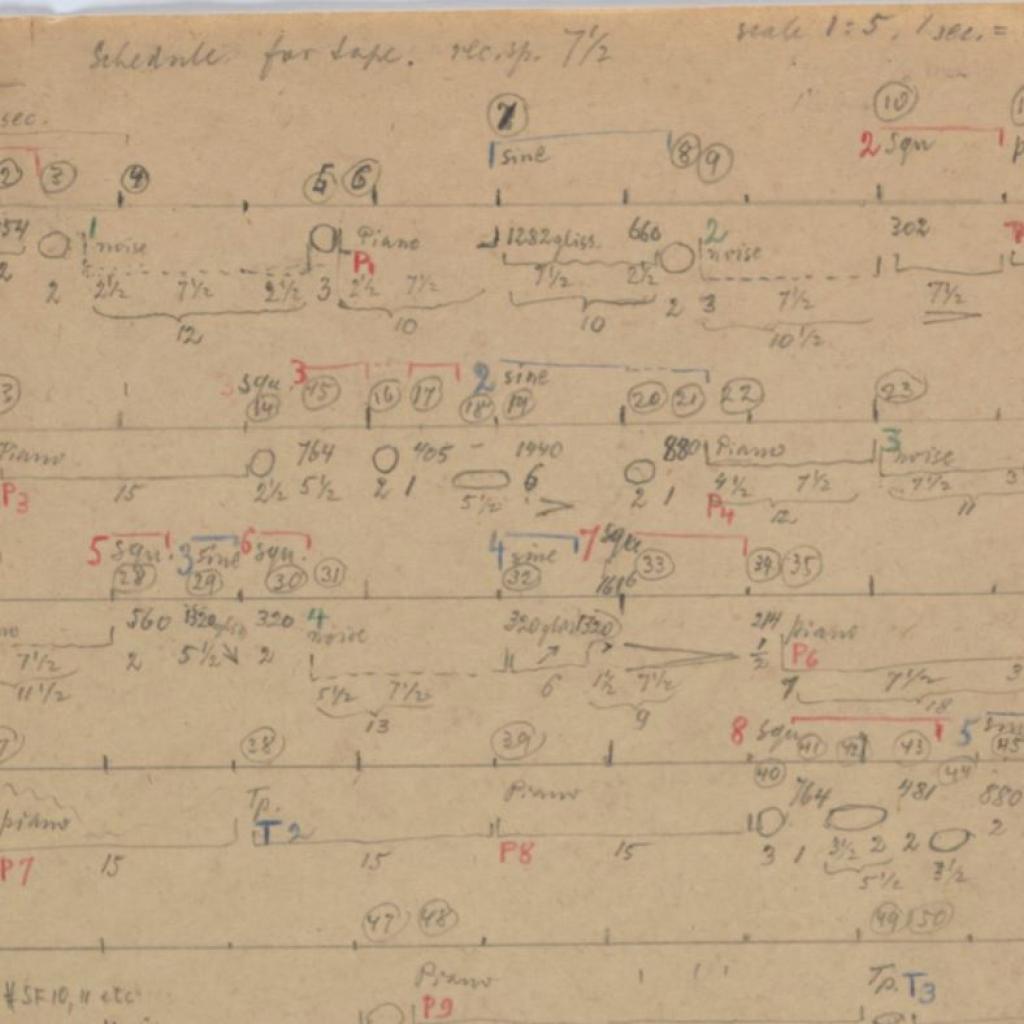 Schedule for tape. rec. sp. 7½ scale 1:5, 1 sec. =
sec. 7 10
1 sine 8 9 2 Squ
2 3 4 5 6
54 1 noise Piano 1282 gliss. 660 2 noise 302
P1
2 2 2½ 7½ 2½ 3 2½ 7½ 7½ 2½ 2 3 7½ 7½
12 10 10 10½
squ. 3 2 sine
3 14 15 16 17 18 19 20 21 22 23
Piano 764 405 1440 880 Piano 3 noise
P3 15 2½ 5½ 2 1 5½ 6 2 1 P4 4½ 7½ 7½ 3
12 11
5 Squ. 3 sine 6 squ. 4 sine 7 squ
28 29 30 31 32 33 34 35
560 1320 gliss 320 4 noise 320 gliss 1320 piano
P6
7½ 2 5½ 2 5½ 7½ 6 1½ 7½ ½ 7 7½ 3
11½ 13 9 18
8 Squ 5
38 39 40 41 42 43 44 45
piano Tp. Piano 764 481 880
P7 15 T2 15 P8 15 3 1 3½ 2 2 3½ 2
5½
47 48 49 50
Piano Tp. T3
SF 10, 11 etc P9